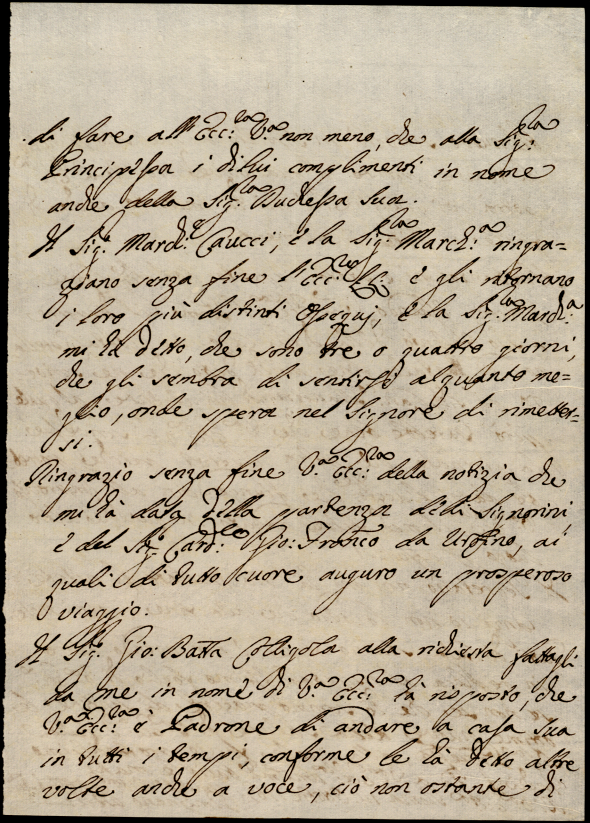 di fare all' Ecc:za V:ra non meno, che alla Sig:ra
Principessa i di lui complimenti in nome
anche della Sig:ra Duchessa sua.
Il Sig:r March:e Caucci, e la Sig:ra March:a ringra=
ziano senza fine l'Ecc:ze e gli ritornano
i loro più distinti ossequj, e la Sig:ra March:a
mi hà detto, che sono tre o quattro giorni,
che gli sembra di sentirsi alquanto me=
glio, onde spera nel Signore di rimetter=
si.
Ringrazio senza fine V:ra Ecc:za della notizia che
mi hà data della partenza de Signorini,
e del Sig:r Card:le Gio: Franco da Urbino, ai
quali di tutto cuore auguro un prosperoso
viaggio.
Il Sig:r Gio: Batta Colligola alla richiesta fattagli
da me in nome di V:ra Ecc:za hà risposto, che
V:ra Ecc:za è Padrone di andare a casa sua
in tutti i tempi, conforme le hà detto altre
volte anche a voce, ciò non ostante di